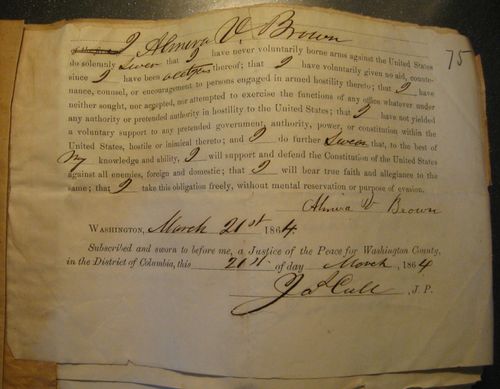 I Almira V. Brown
75
do solemnly Swear that I have never voluntarily borne arms against the United States
since I have been a citizen thereof; that I have voluntarily given no aid, counte-
nance, counsel, or encouragement to persons engaged in armed hostility thereto; that I have
neither sought, nor accepted, nor attempted to exercise the functions of any office whatever under
any authority or pretended authority in hostility to the United States; that I have not yielded
a voluntary support to any pretended government, authority, power, or constitution within the
United States, hostile or inimical thereto; and I do further Swear that, to the best of
My knowledge and ability, I will support and defend the Constitution of the United States
against all enemies, foreign and domestic; that I will bear true faith and allegiance to the
same; that I take this obligation freely, without mental reservation or purpose of evasion.
Almira V Brown
WASHINGTON, March 21st 1864.
Subscribed and sworn to before me, a Justice of the Peace for Washington County,
in the District of Columbia, this 21st. of day March, 1864
Jas Cull, J. P.